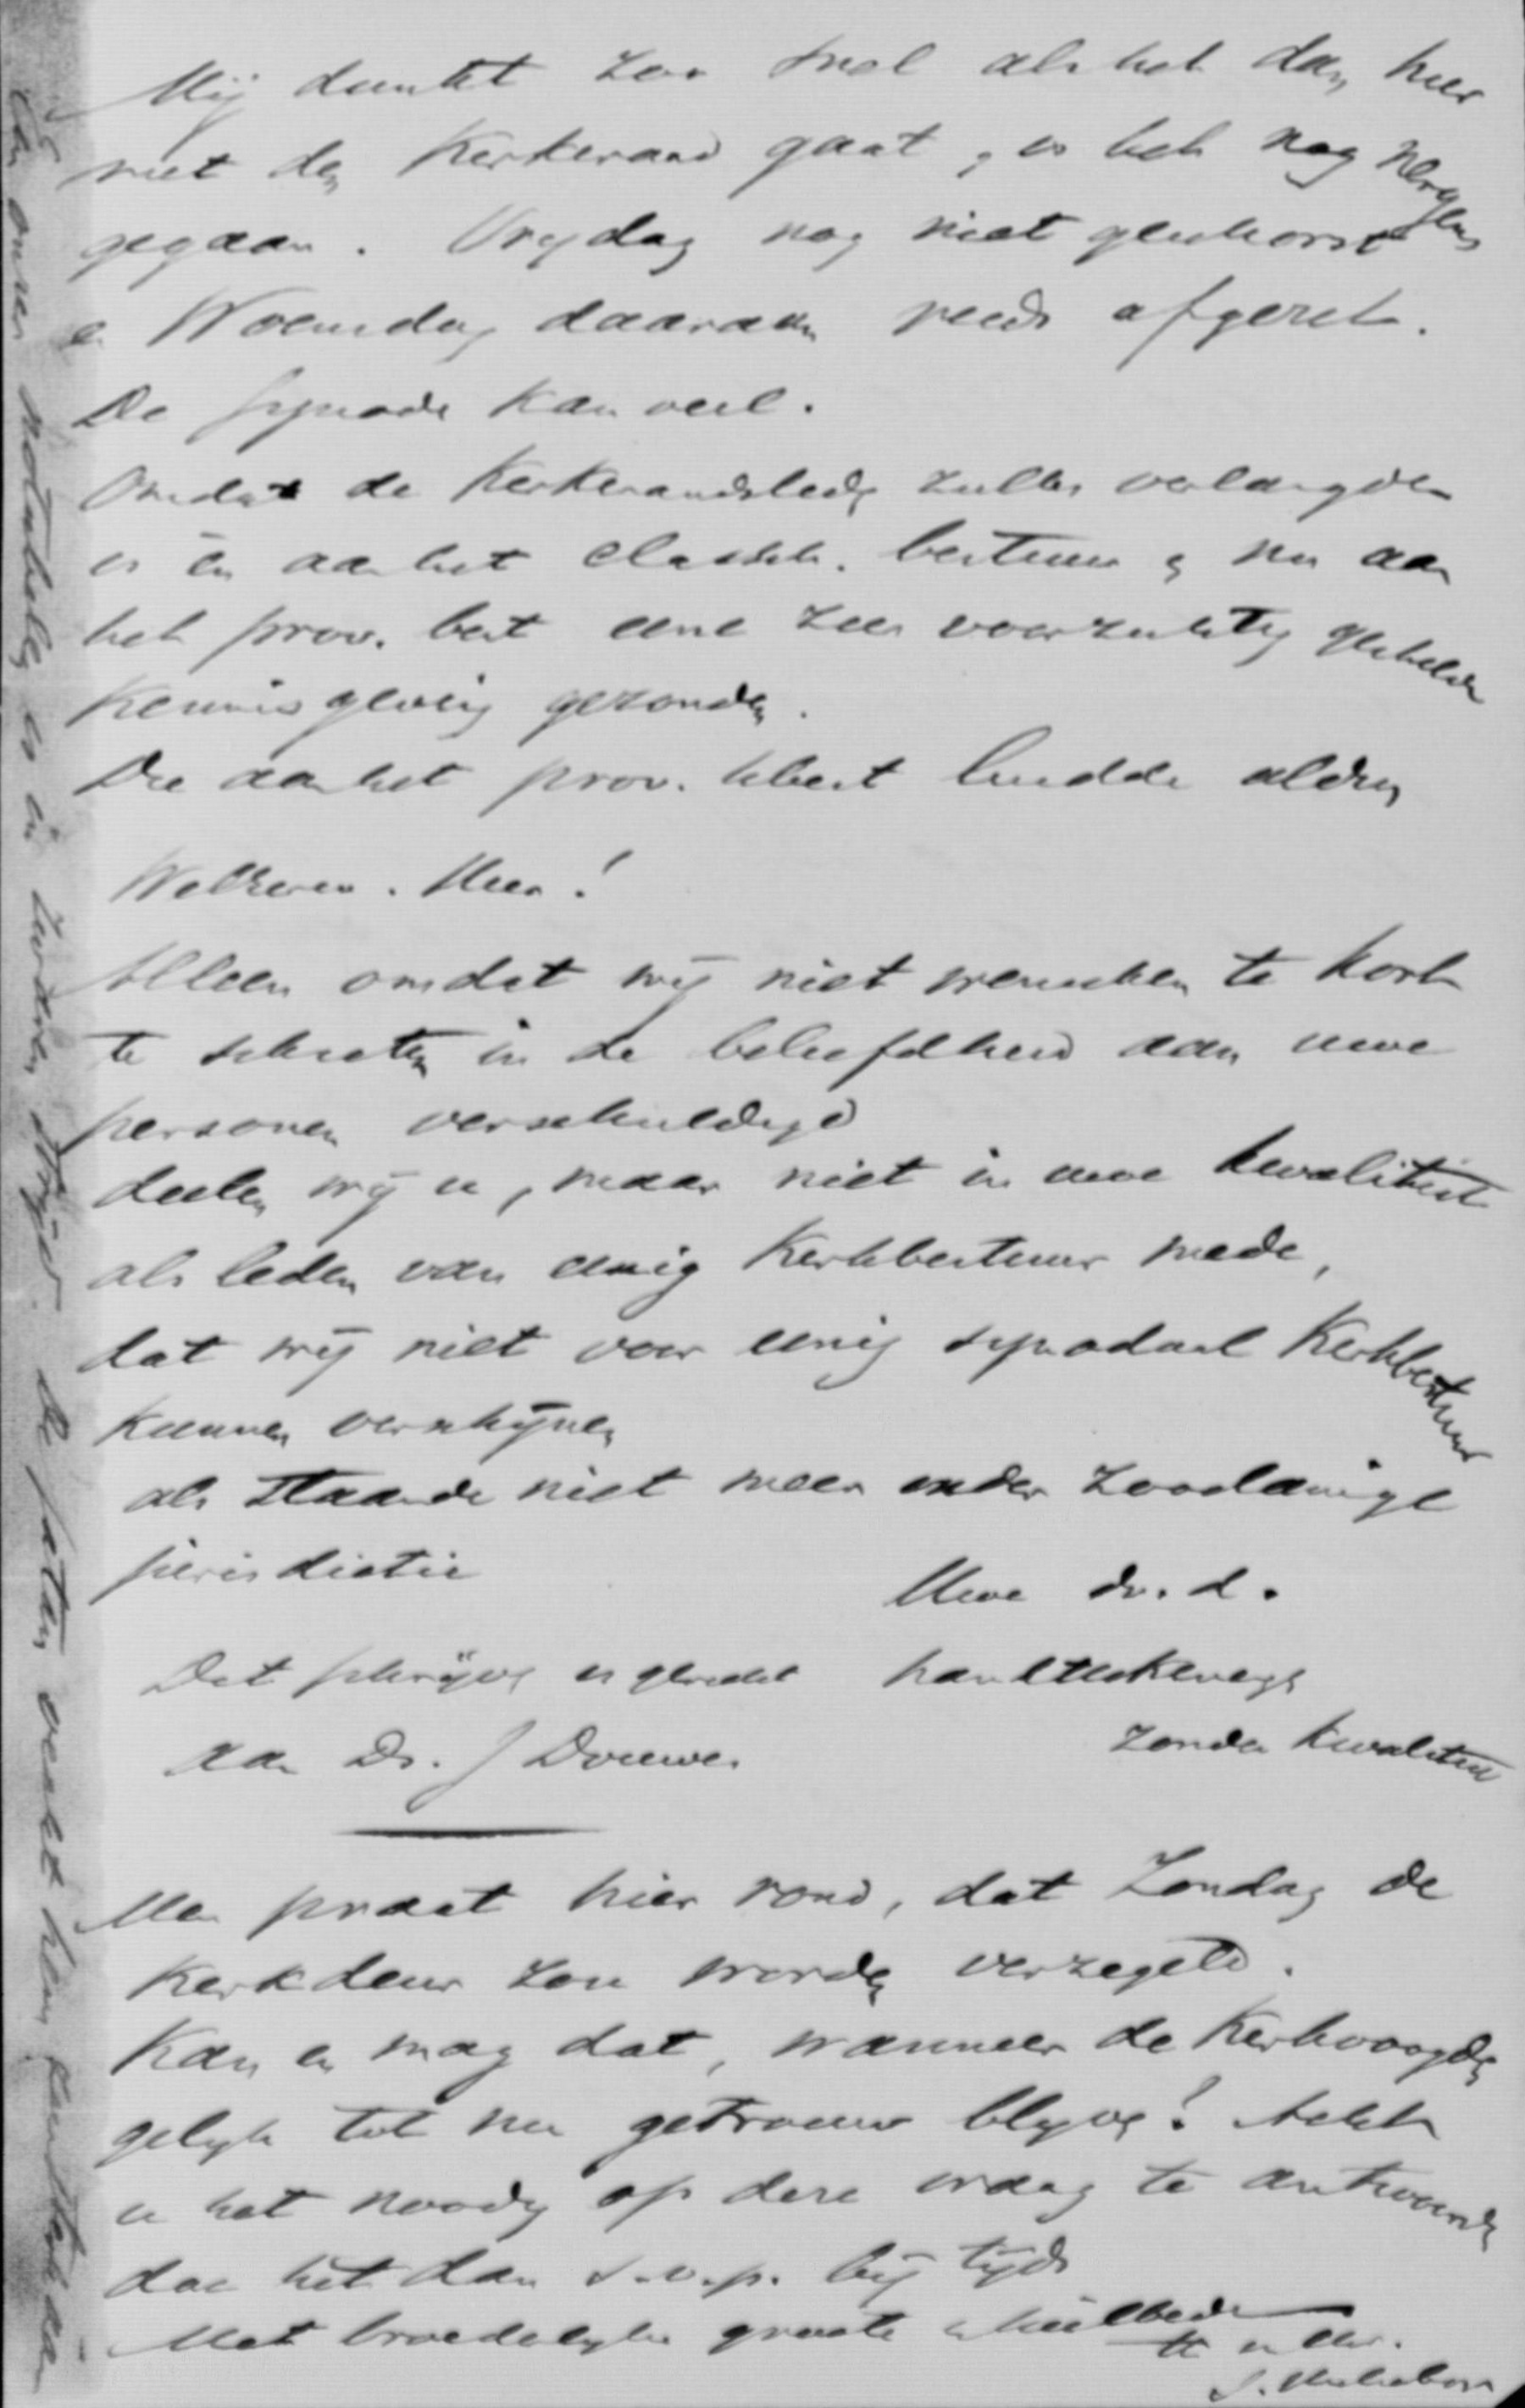 Mij dunkt zoo snel als het dan hier
met den Kerkeraad gaat, is het nog nergens
gegaan. Vrydag nog niet geschorst
en Woensdag daaraan reeds afgezet.
De synode kan veel.
Omdat de Kerkeraadsleden zulks verlangden
is èn aan het classik. bestuur en nu aan
het prov. best eene zeer voorzichtig gestelde
Kennisgeving gezonden.
Die aan het prov. kbest luidde aldus
Weleerw. Heer!
Alleen omdat wij niet wenschen te kort
te schieten in de beleefdheid aan uwe
personen verschuldigd
deelen wij u, maar niet in uwe kwaliteit
als leden van eenig Kerkbestuur mede,
dat wij niet voor eenig synodaal Kerkbestuur
kunnen verschijnen
als staande niet meer onder zoodanige
jurisdictie
Uwe dv. d.
Dit schrijven is gericht
handteekeningen
aan Ds. J Douwes
zonder kwaliteit
Men praat hier rond, dat Zondag de
Kerkdeur zou worden verzegeld.
Kan en mag dat, wanneer de Kerkvoogden
gelyk tot nu getrouw blyven? Acht
u het noodig op deze vraag te antwoorden
doe het dan s.v.p. bij tijds
Met broederlyke groete en heilbede
tt